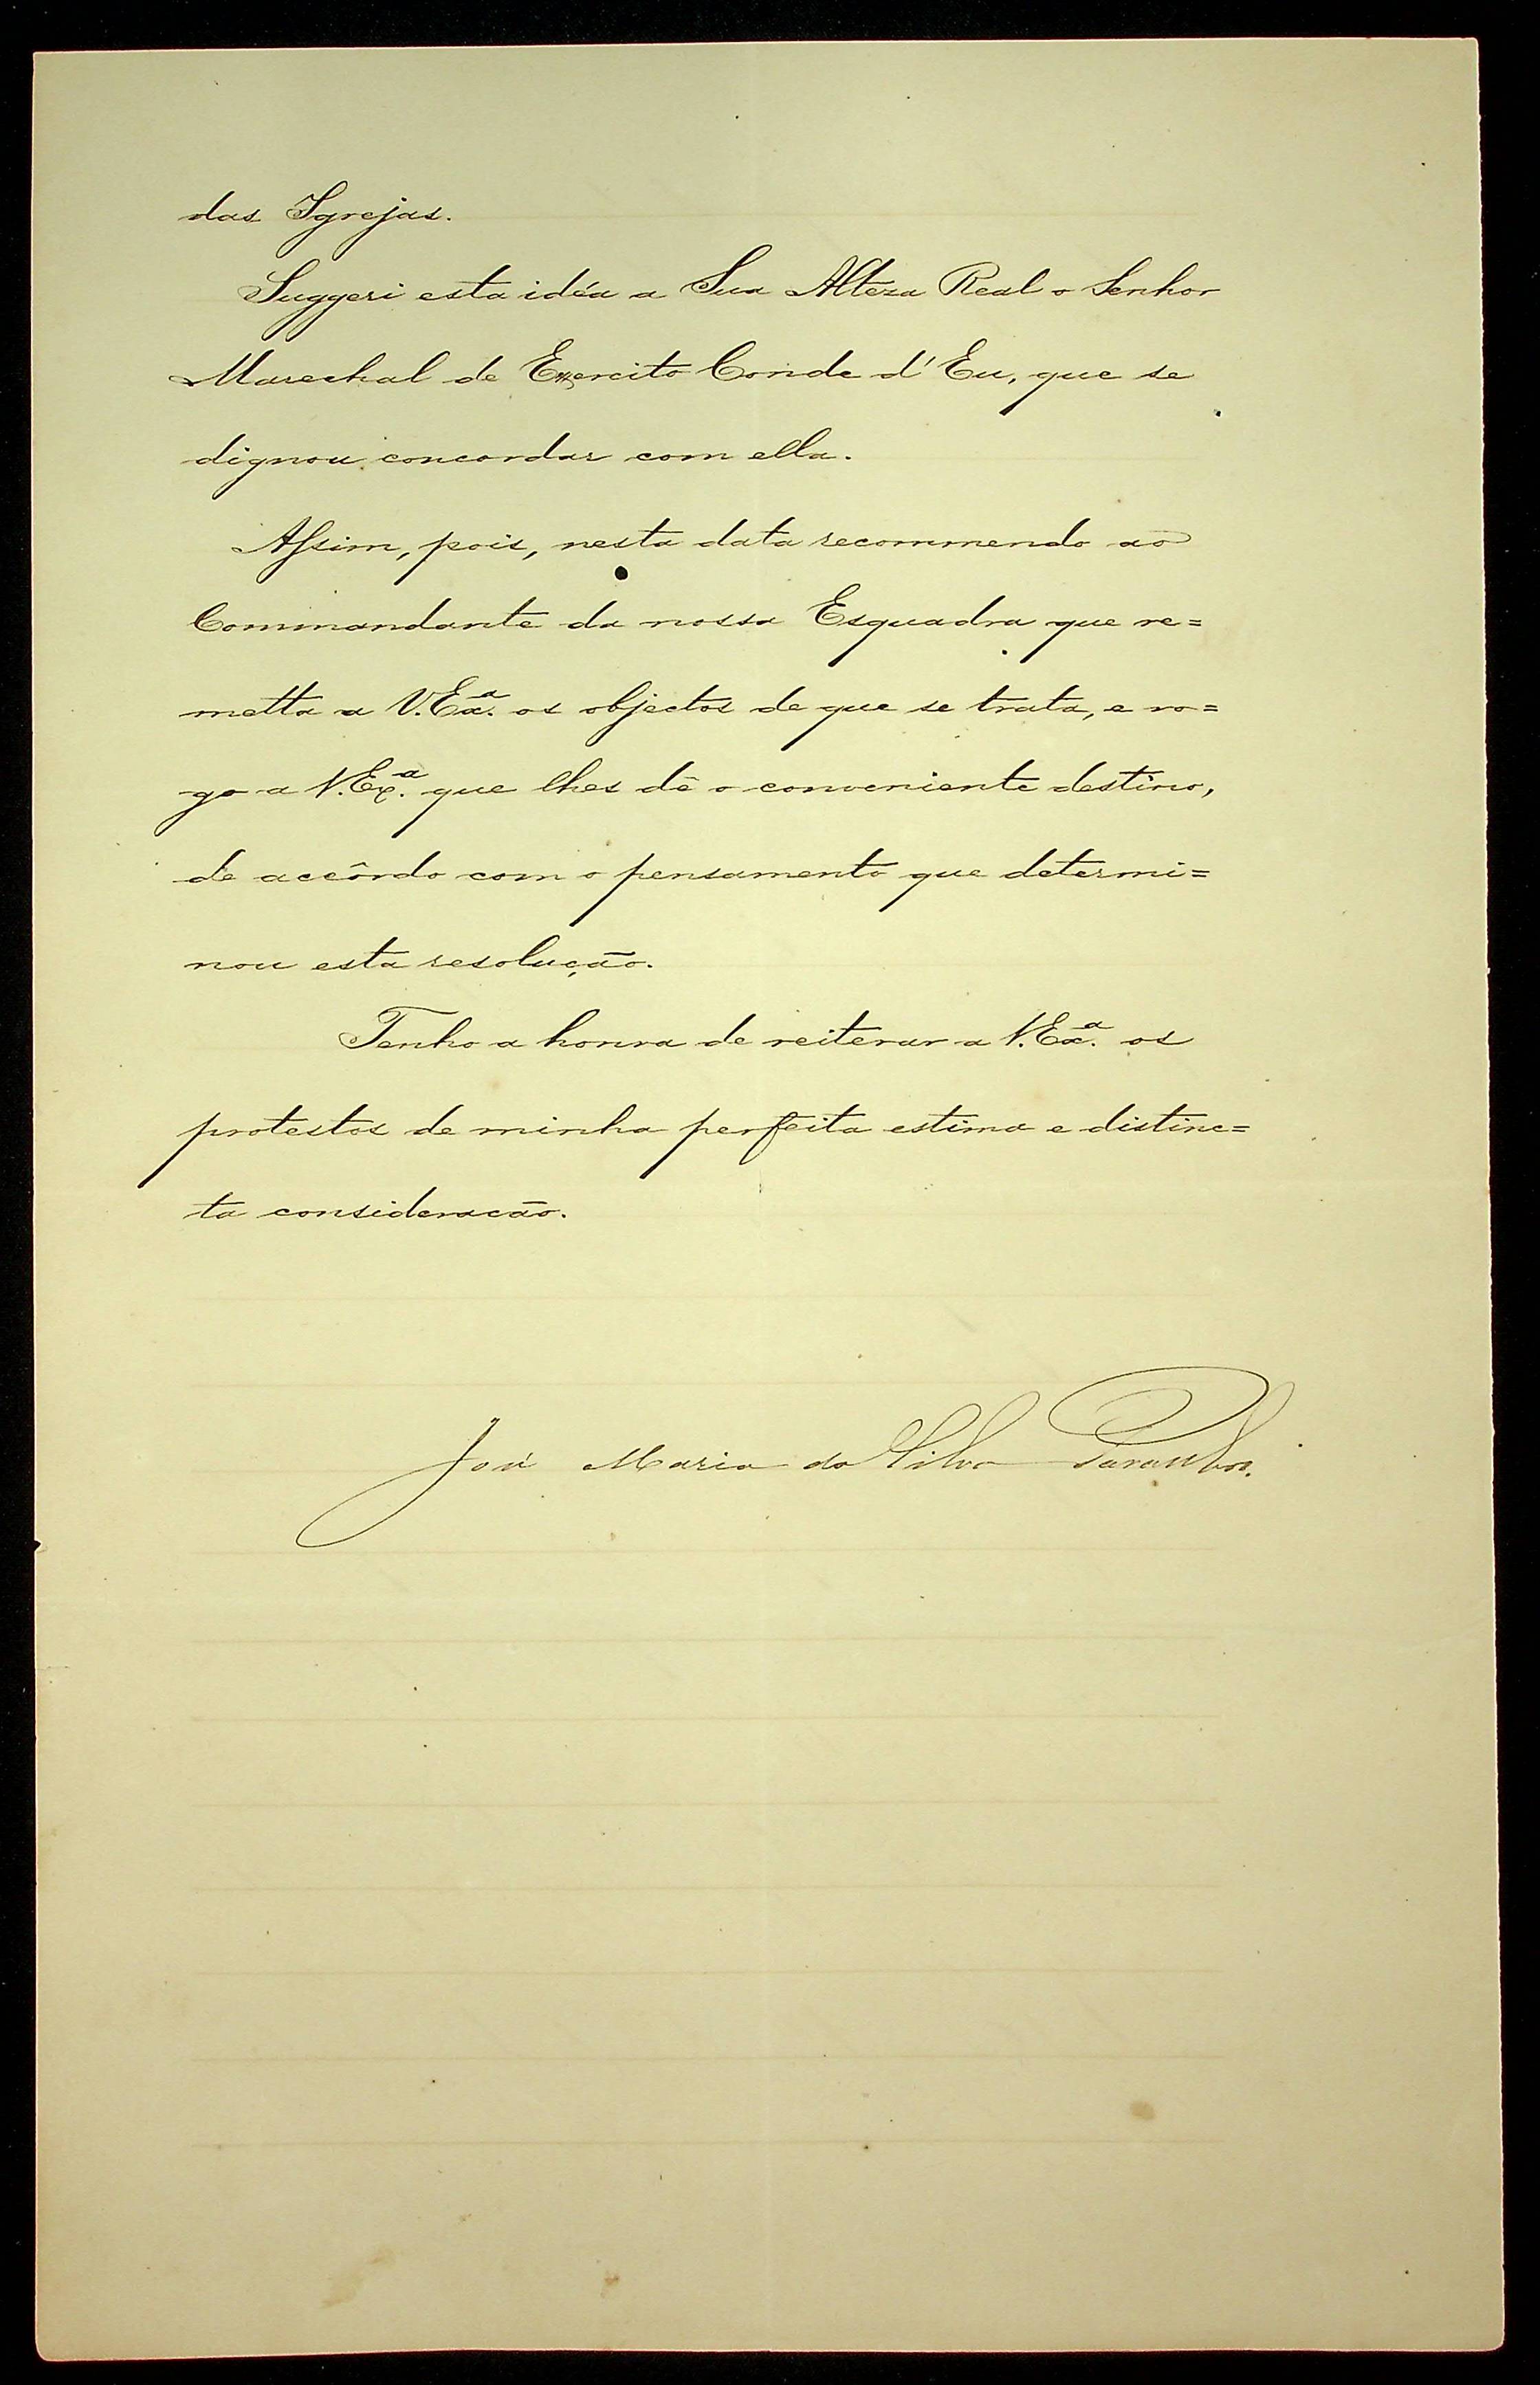 das Igrejas.
Suggeri esta idéa a Sua Alteza Real o Senhor
Marechal de Exercito Conde d'Eu, que se
dignou concordar com ella.
Assim, pois, nesta data recommendo ao
Commandante da nossa Esquadra que re=
metta a V.Ex.ª os objectos de que se trata, e ro=
go a V.Ex.ª que lhes dê o conveniente destino,
de accôrdo com o pensamento que determi=
nou esta resolução.
Tenho a honra de reiterar a V.Ex.ª os
protestos de minha perfeita estima e distinc=
ta consideracão.
José Maria da Silva Paranhos.